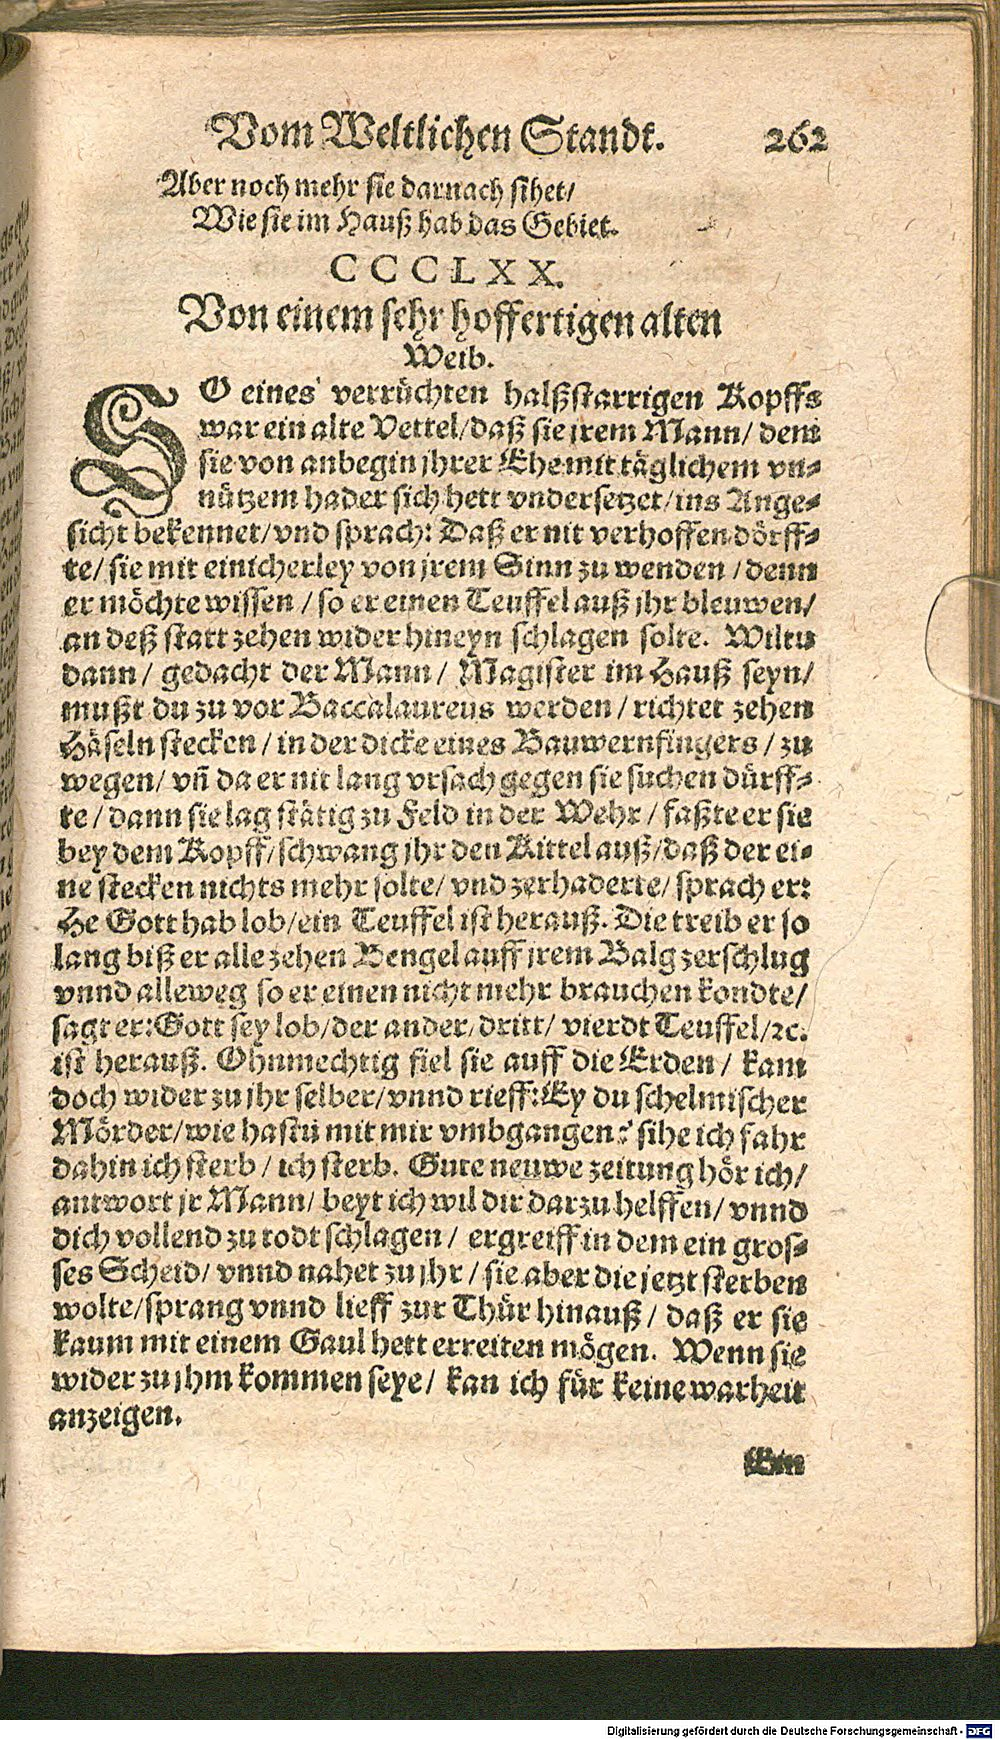 Vom Weltlichen Standt. 262
Aber noch mehr sie darnach sihet/
Wie sie im Hauß hab das Gebiet.
CCCLXX.
Von einem sehr hoffertigen alten
Weib.
SO eines verrüchten halßstarrigen Kopffs
war ein alte Vettel/daß sie jrem Mann/ dem
sie von anbegin jhrer Ehe mit täglichem vn-
nützem hader sich hett vndersetzet/ins Ange-
sicht bekennet/vnd sprach: Daß er nit verhoffen dörff-
te/ sie mit einicherley von jrem Sinn zu wenden / denn
er möchte wissen / so er einen Teuffel auß jhr bleuwen/
an deß statt zehen wider hineyn schlagen solte. Wiltu
dann/ gedacht der Mann/ Magister im Hauß seyn/
mußt du zu vor Baccalaureus werden / richtet zehen
Häseln stecken / in der dicke eines Bauwernfingers / zu
wegen/ vñ da er nit lang vrsach gegen sie suchen dürff-
te / dann sie lag stätig zu Feld in der Wehr / faßte er sie
bey dem Kopff/schwang jhr den Kittel auß/daß der ei-
ne stecken nichts mehr solte/ vnd zerhaderte/ sprach er:
He Gott hab lob/ein Teuffel ist herauß. Die treib er so
lang biß er alle zehen Bengel auff jrem Balg zerschlug
vnnd alleweg so er einen nicht mehr brauchen kondte/
sagt er: Gott sey lob/der ander/dritt/ vierdt Teuffel/ꝛc.
ist herauß. Ohnmechtig fiel sie auff die Erden / kam
doch wider zu jhr selber/vnnd rieff: Ey du schelmischer
Mörder/wie hastu mit mir vmbgangen? sihe ich fahr
dahin ich sterb / ich sterb. Gute neuwe zeitung hör ich/
antwort jr Mann/ beyt ich wil dir darzu helffen/ vnnd
dich vollend zu todt schlagen / ergreiff in dem ein gros-
ses Scheid/ vnnd nahet zu jhr / sie aber die jetzt sterben
wolte/sprang vnnd lieff zur Thür hinauß / daß er sie
kaum mit einem Gaul hett erreiten mögen. Wenn sie
wider zu jhm kommen seye/ kan ich für keine warheit
anzeigen.
Ein
Digitalisierung gefördert durch die Deutsche Forschungsgemeinschaft - DFG